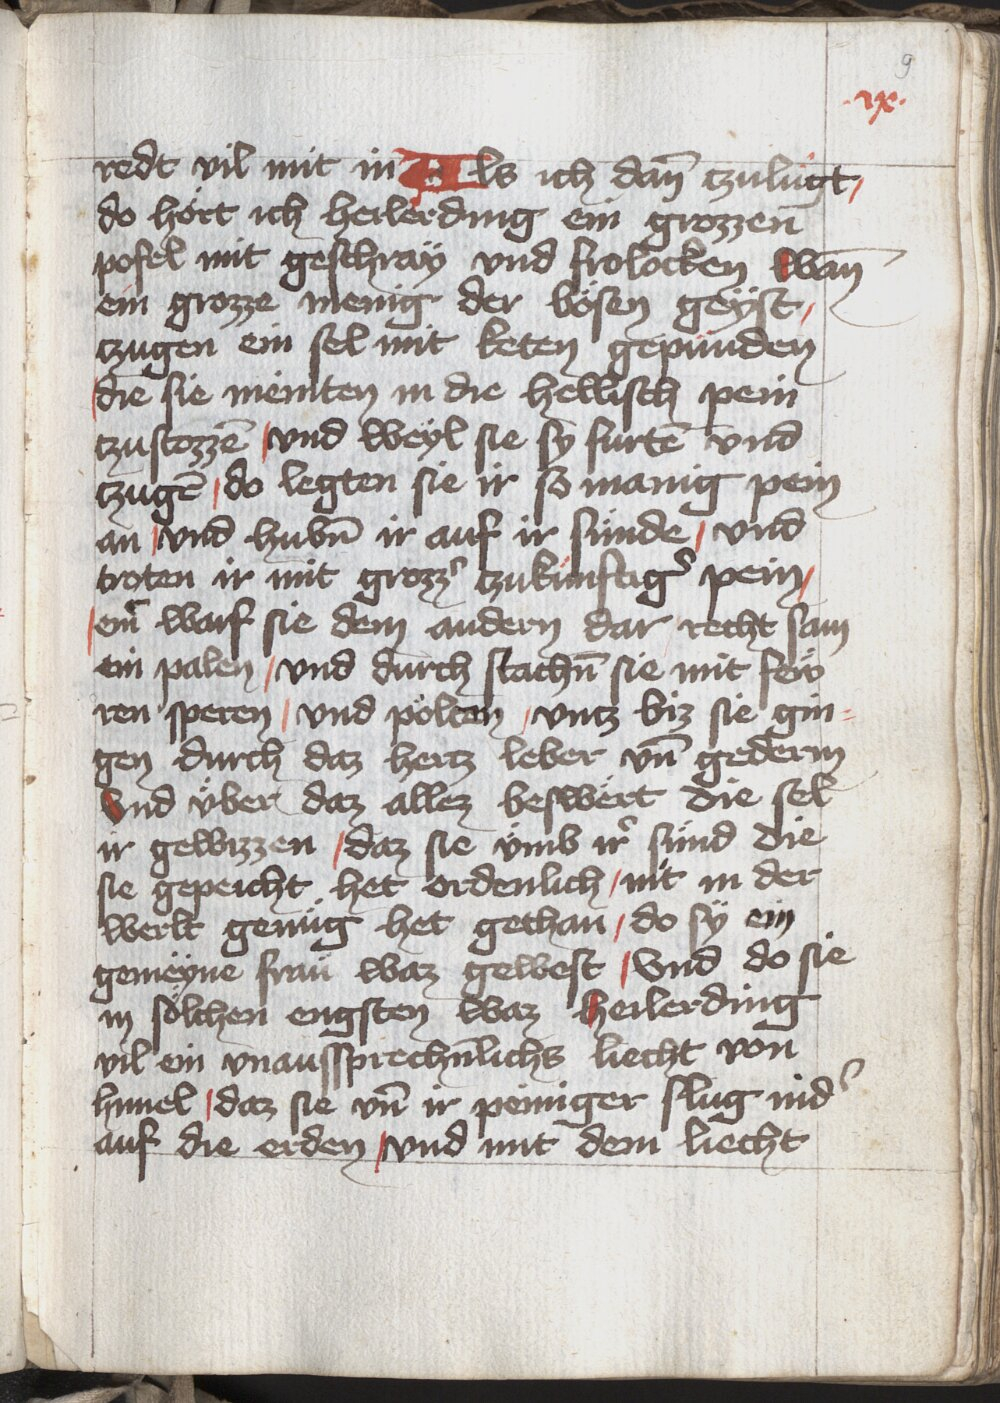 9
.ix.
redt vil mit in Als ich dan̄ tzulúgt /
do hört ich heilerding ein grozzen̄
pofel mit geschraÿ vnd frolocken wan̄
ein grozze menig der bösen geÿst /
tzugen ein sel mit keten gepunden
/ die sie meinten in die hellisch pein
tzustozzē / vnd weyl sie sy furtē vnd
tzugē / do legten sie ir so manig pein
an / vnd hubn̄ ir auf ir sunde / vnd
troten ir mit grozz' tzukunftig' pein /
/ ein' warf sie dem andern dar recht sam
ein palen / vnd durch stachn̄ sie mit few
ren speren / vnd pölten / vntz biz sie gin=
gen durch daz hertz leber vn̄ gederm
vnd über daz allez beswërt die sel
ir gewizzen / daz sie ümb ir' sünd die
sie gepeicht het ordenlich / nit in der
werlt genüg het gethan / do sÿ ein
gemëyne fraŭ waz gewest / Vnd do sie
in sölchen engsten waz heilerding
vil ein vnaussprechn̄lichs liecht von
himel / daz sie vn̄ ir peiniger slug nid'
auf die erden / vnd mit dem liecht